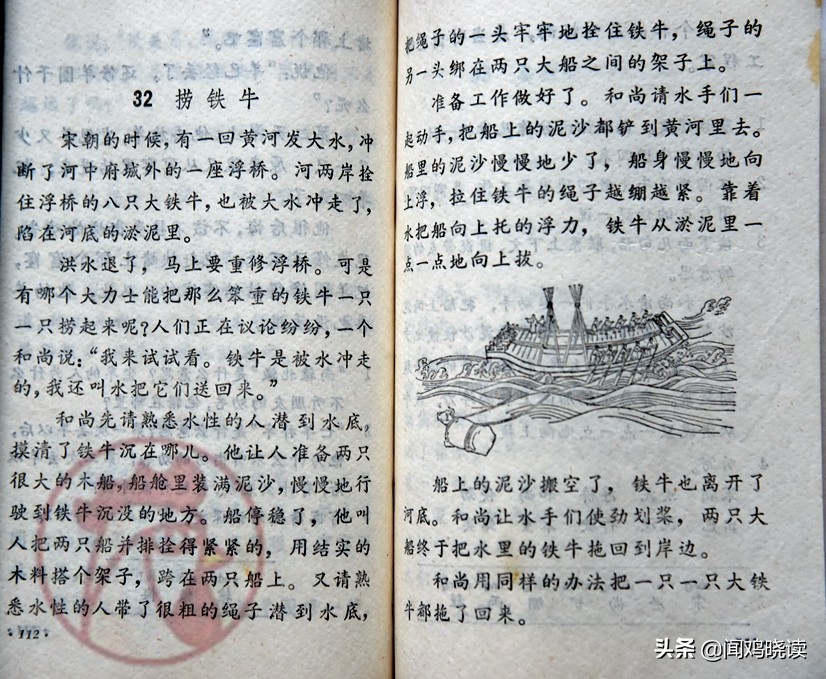 32 捞铁牛
宋朝的时候，有一回黄河发大水，冲
断了河中府城外的一座浮桥。河两岸拴
住浮桥的八只大铁牛，也被大水冲走了，
陷在河底的淤泥里。
洪水退了，马上要重修浮桥。可是
有哪个大力士能把那么笨重的铁牛一只
一只捞起来呢？人们正在议论纷纷，一个
和尚说：“我来试试看。铁牛是被水冲走
的，我还叫水把它们送回来。”
和尚先请熟悉水性的人潜到水底，
摸清了铁牛沉在哪儿。他让人准备两只
很大的木船，船舱里装满泥沙，慢慢地行
驶到铁牛沉没的地方。船停稳了，他叫
人把两只船并排拴得紧紧的，用结实的
木料搭个架子，跨在两只船上。又请熟
悉水性的人带了很粗的绳子潜到水底，
·112·
把绳子的一头牢牢地拴住铁牛，绳子的
另一头绑在两只大船之间的架子上。
准备工作做好了。和尚请水手们一
起动手，把船上的泥沙都铲到黄河里去。
船里的泥沙慢慢地少了，船身慢慢地向
上浮，拉住铁牛的绳子越绷越紧。靠着
水把船向上托的浮力，铁牛从淤泥里一
点一点地向上拔。
船上的泥沙搬空了，铁牛也离开了
河底。和尚让水手们使劲划桨，两只大
船终于把水里的铁牛拖回到岸边。
和尚用同样的办法把一只一只大铁
牛都拖了回来。
头条 @闻鸡晓读